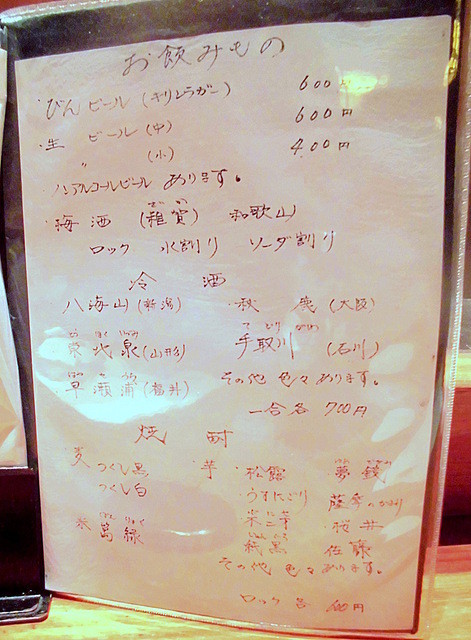 お飲みもの
・びんビール(キリンラガー) 600
・生 ビール(中) 600円
〃 (小) 400円
ノンアルコールビール あります。
梅酒 (雑賀) 和歌山
ロック 水割り ソーダ割り
冷 酒
八海山(新潟) ・秋鹿(大阪)
泉(山形) 手取川 (石川)
早瀬浦(福井) その他 色々あります。
一合各 700円
焼 酎
麦 つくし黒 ・芋 ・松露 夢鏡
つくし白 ・うすにごり 薩摩のかおり
米 萬緑 米二 ・桜井
黒 佐藤
その他 色々あります。
ロック 各 円